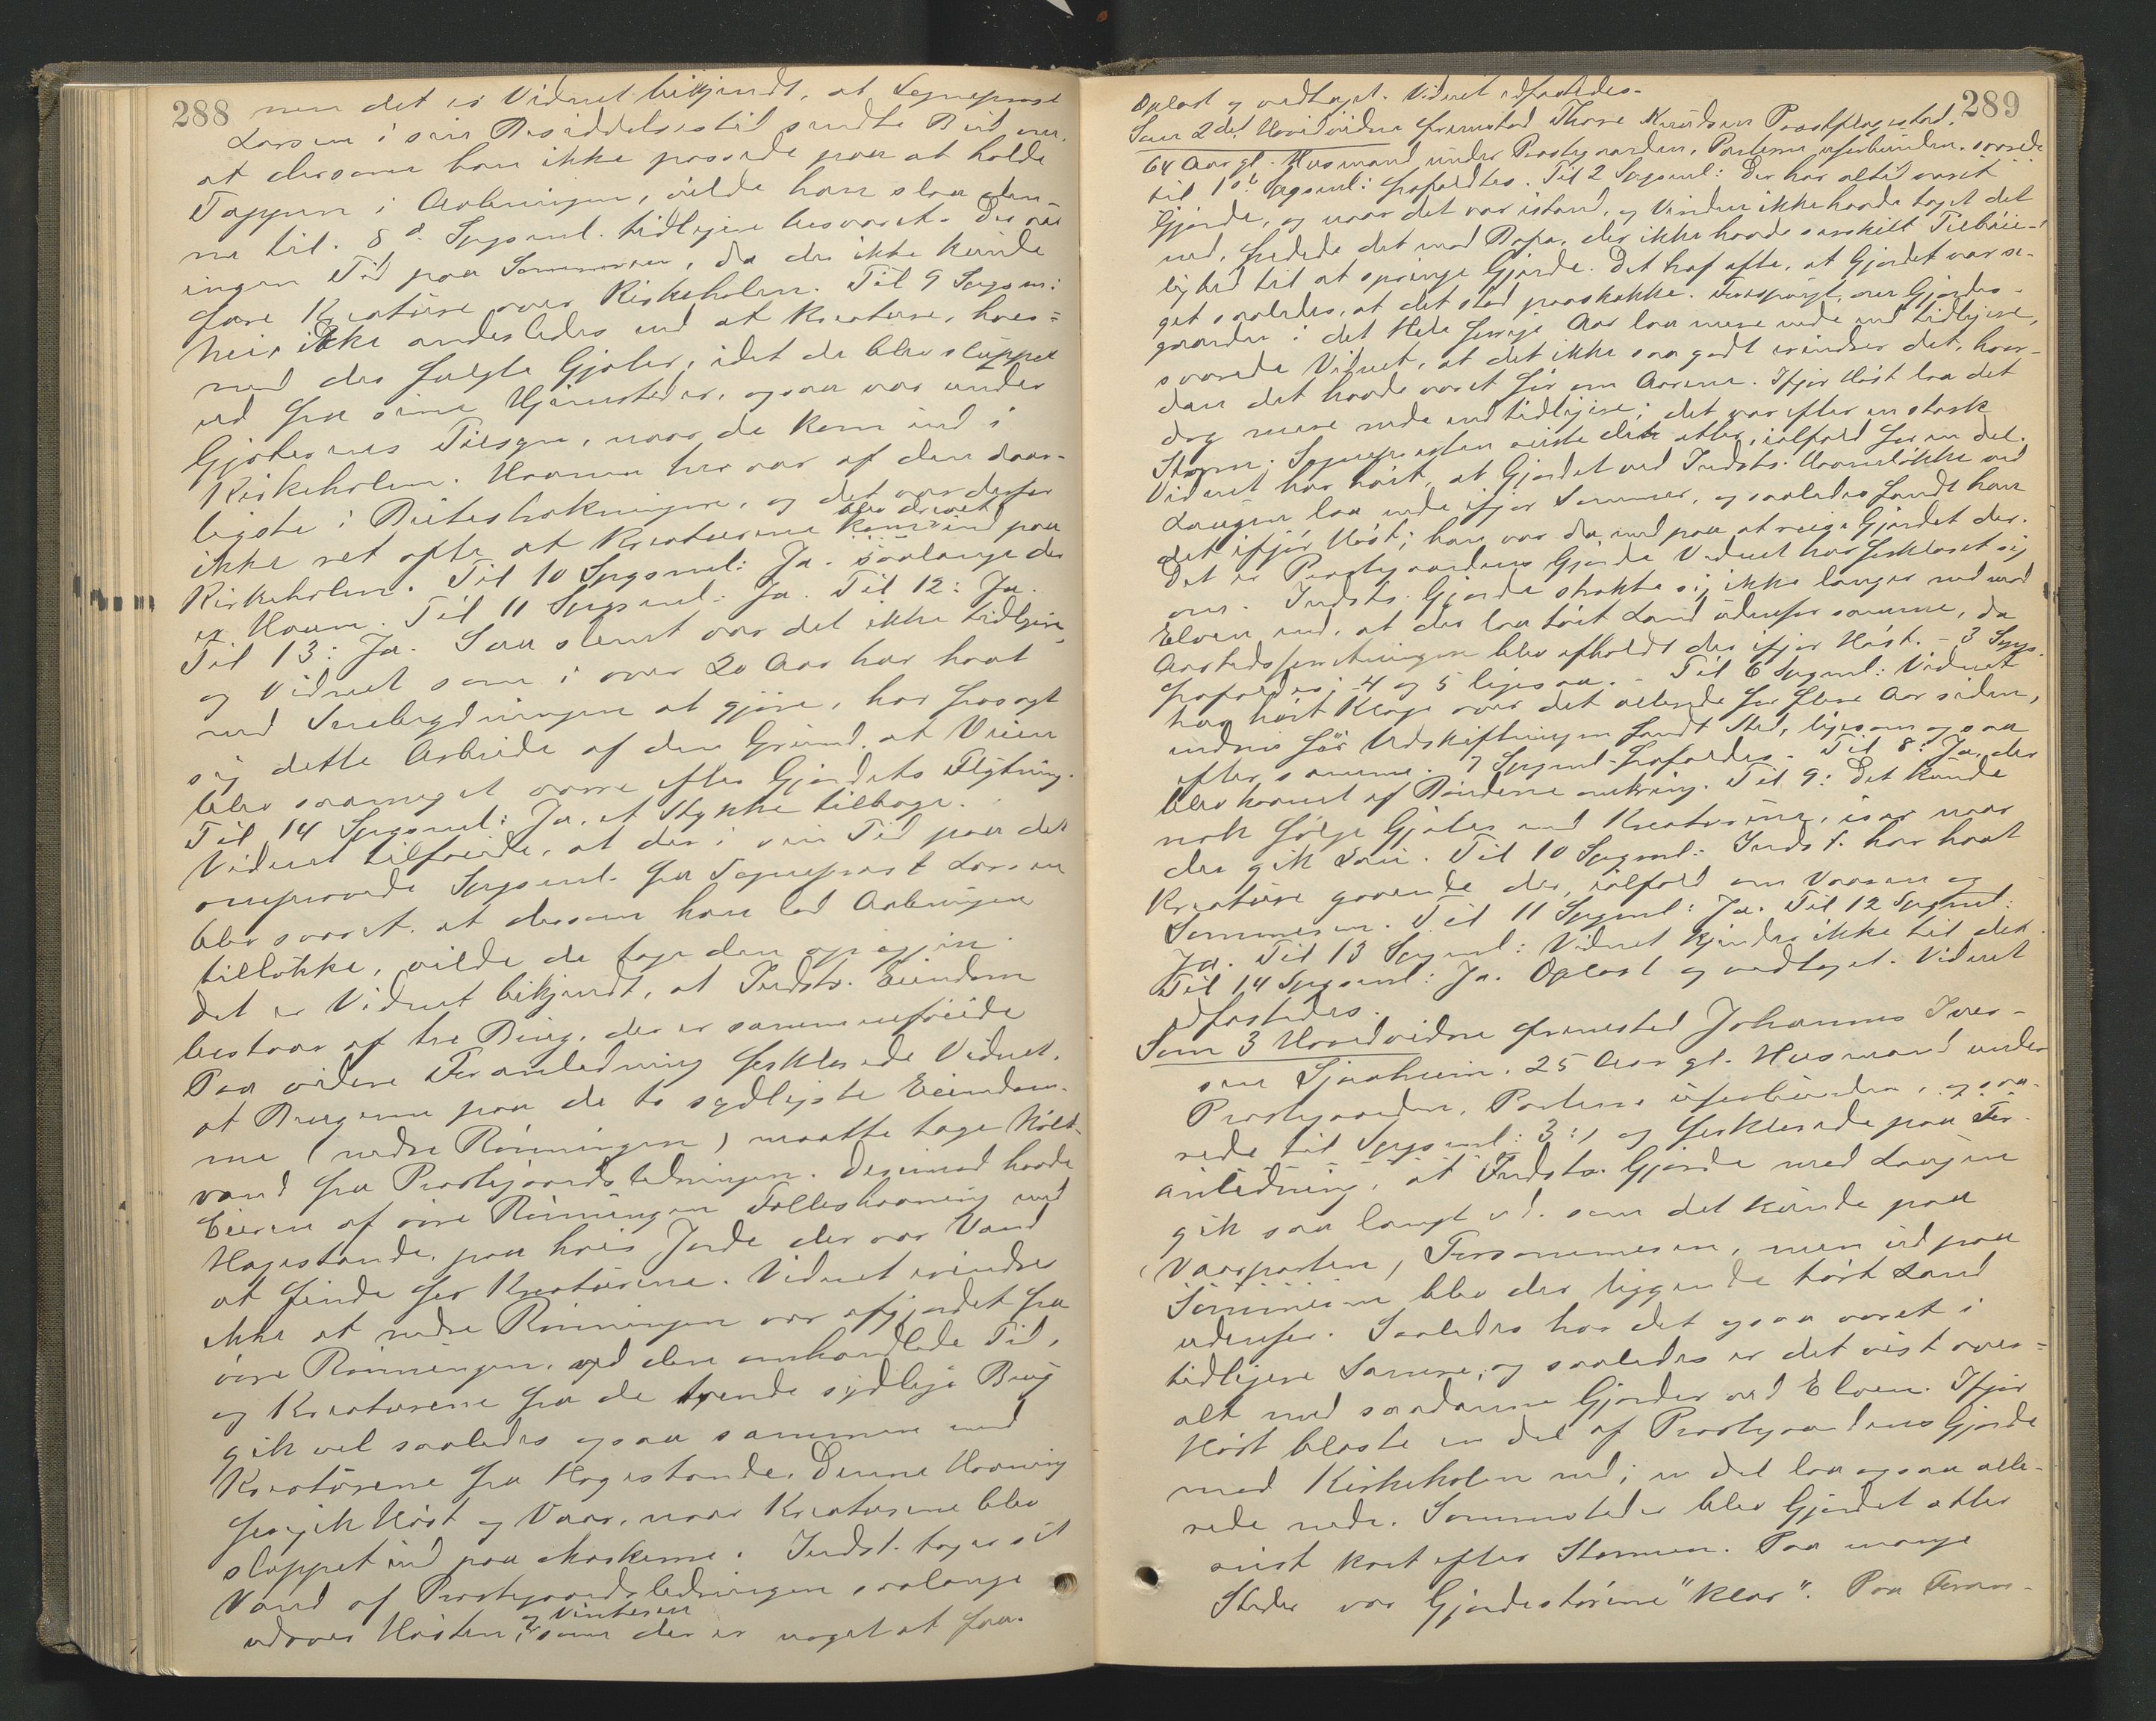 288
men det er Vidnet bekjendt, at Sogneprest
Larsen i sin Besiddelsestid sendte Bud om,
at dersom han ikke passede paa at holde
Tappen i Aabningen, vilde han slaa den-
ne til. 8d Spgsml. tidligere besvaret. Der var
ingen Tid paa Sommeren, da der ikke kunde
fare Kreature over Kirkeholen. Til 9 Spgsm:
Nei, ikke anderledes end at Kreature, hvor=
med der fulgte Gjæter, idet de blev sluppet
ud fra sine Hjemsteder, ogsaa var under
Gjæternes Tilsyn, naar de kom ind i
Kirkeholen. Havnen her var af den daar-
ligste i Beitestrækningen, og det var derfor
ikke ret ofte at Kreaturene kom blev drevet ind paa
Kirkeholen. Til 10 Spgsml: Ja. saalænge der
er Havn. Til 11 Spgsml: Ja. Til 12: Ja.
Til 13: Ja. Saa slemt var det ikke tidligere,
og Vidnet som i over 20 Aar har havt
med Senebygdningen at gjøre, har frasagt
sig dette Arbeide af den Grund, at Veien
blev saameget værre efter Gjærdets Flytning.
Til 14 Spgsml: Ja, et Stykke tilbage.
Vidnet tilføiede, at der i sin Tid paa det
omprovede Spgsml. fra Sogneprest Larsen
blev svaret, at dersom han lod Aabningen
tillukke, vilde de tage den op igjen.
Det er Vidnet bekjendt, at Indsts. Eiendom
bestaar af tre Brug, der er sammenføiede
Paa videre Foranledning forklarede Vidnet,
at Brugerne paa de to sydligste Eiendom-
me (nedre Rønningen) maatte tage Kold-
vand fra Prestegaardsledningen. Derimod havde
Eieren af øvre Rønningen Fælleshavning med
Hagestande, paa hvis Jorde der var Vand
at finde for Kreaturene. Vidnet erindre
ikke at nedre Rønningen var afgjerdet fra
øvre Rønningen, ved den omhandlede Tid,
og Kreaturene fra de tvende sydlige Brug
gik vel saaledes ogsaa sammen med
Kreaturene fra Hagestande. Denne Havning
foregik Høst og Vaar, naar Kreaturene blev
sluppet ind paa Markerne. Indst. tager sit
Vand af Prestegaardsledningen saalænge
udover Høsten & Vinteren, som der er noget at faa.
289
Oplæst og vedtaget. Vidnet edfæstedes.
Som 2det Hovedvidne fremstod Thore Knudsen Præstflagestad,
64 Aar gl. Husmand under Prestegaarden, Parterne uforbunden. svarede
til 1st Spgsml: frafaldtes. Til 2 Spgsml: Der har altid været
Gjærde, og naar det var istand, og Vinden ikke havde taget det
ned, fredede det mod Bøfæ, der ikke havde særskilt Tilbøie-
lighed til at springe Gjærde. Det traf ofte, at Gjærdet var se-
get saaledes, at det stod paaskakke. Forespurgt, om Gjærdes-
gaarden i det Hele forrige Aar laa mere nede end tidligere,
svarede Vidnet, at det ikke saa godt erindrer det, hvor-
dan det havde været før om Aarene. Ifjor Høst laa det
dog mere nede end tidligere; det var efter en stærk
Storm. Sognepresten reiste det atter, ialfald for en del.
Vidnet har hørt, at Gjærdet ved Indsts. Havneløkke ved
Laagen laa nede ifjor Sommer, og saaledes fandt han
det ifjor Høst; han var da med paa at reise Gjærdet der.
Det er Prestegaardens Gjærde Vidnet har forklaret sig
om. Indsts. Gjærde strakte sig ikke længer ned mod
Elven end, at der laa tørt Land udenfor samme, da
Aastedsforretningen blev afholdt der ifjor Høst. - 3 Spgs.
frafaldes; 4 og 5 ligesaa. - Til 6 Spgsml: Vidnet
har hørt Klage over det allerede for flere Aar siden,
endnu før Udskiftningen fandt Sted, ligesom ogsaa
efter samme. 7 Spgsml. frafaldes. - Til 8: Ja, der
blev havnet af Bønderne omkring. Til 9: Det kunde
nok følge Gjæter med Kreaturene, især naar
der gik Sau. Til 10 Spgsml: Indst. har havt
Kreature gaaende der, ialfald om Vaaren og
Sommeren. Til 11 Spgsml: Ja. Til 12 Spgsml:
Ja. Til 13 Spgsml: Vidnet kjender ikke til det.
Til 14 Spgsml: Ja. Oplæst og vedtaget. Vidnet
edfæstedes.
Som 3 Hovedvidne fremsted Johannes Iver-
sen Sjaaheim, 25 Aar gl. Husmand under
Prestegaarden, Parterne uforbunden, og sva-
rede til Spgsml: 3:, og forklarede paa For-
anledning, at Indsts. Gjærde mod Laagen
gik saa langt ud. som det kunde paa
Vaarparten, Forsommeren, men ud paa
Sommeren blev der liggende tørt Land
udenfor. Saaledes har det ogsaa været i
tidligere Somre, og saaledes er det vist over=
alt med saadanne Gjærder ved Elven. Ifjor
Høst blæste en del af Prestegaardens Gjærde
mod Kirkeholen ned; en del laa ogsaa alle-
rede nede. Sommesteder blev Gjærdet atter
reist kort efter Stormen. Paa mange
Steder var Gjærdestørene "klar". Paa Foraar-